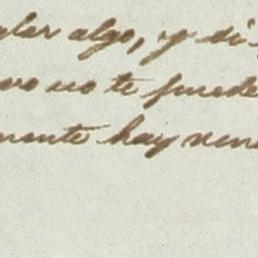 algo, y si
no te puede
mente hay